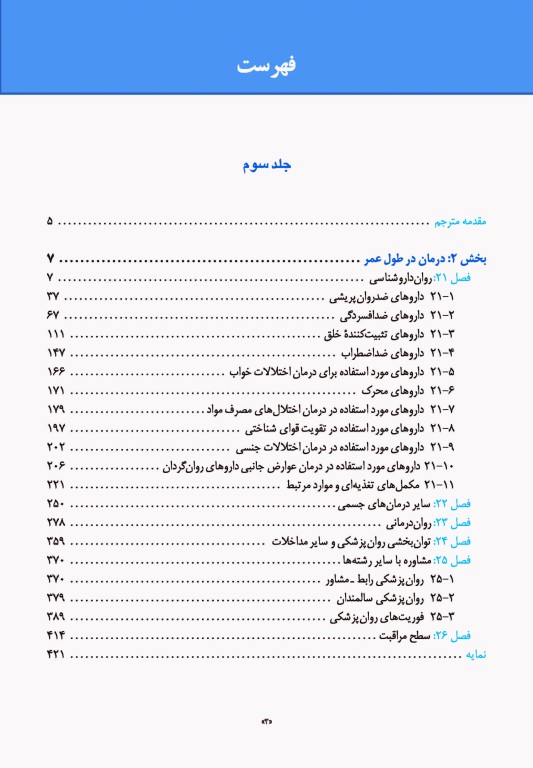 فهرست
جلد سوم
مقدمه مترجم ........ ۵
بخش ۲: درمان در طول عمر ........ ۷
فصل ۲۱: روان‌داروشناسی ........ ۷
۲۱-۱ داروهای ضدروان‌پریشی ........ ۳۷
۲۱-۲ داروهای ضدافسردگی ........ ۶۷
۲۱-۳ داروهای تثبیت‌کنندهٔ خلق ........ ۱۱۱
۲۱-۴ داروهای ضداضطراب ........ ۱۴۷
۲۱-۵ داروهای مورد استفاده برای درمان اختلالات خواب ........ ۱۶۶
۲۱-۶ داروهای محرک ........ ۱۷۱
۲۱-۷ داروهای مورد استفاده در درمان اختلال‌های مصرف مواد ........ ۱۷۹
۲۱-۸ داروهای مورد استفاده در تقویت قوای شناختی ........ ۱۹۷
۲۱-۹ داروهای مورد استفاده در درمان اختلالات جنسی ........ ۲۰۲
۲۱-۱۰ داروهای مورد استفاده در درمان عوارض جانبی داروهای روان‌گردان ........ ۲۰۶
۲۱-۱۱ مکمل‌های تغذیه‌ای و موارد مرتبط ........ ۲۲۱
فصل ۲۲: سایر درمان‌های جسمی ........ ۲۵۰
فصل ۲۳: روان‌درمانی ........ ۲۷۸
فصل ۲۴: توان‌بخشی روان‌پزشکی و سایر مداخلات ........ ۳۵۹
فصل ۲۵: مشاوره با سایر رشته‌ها ........ ۳۷۰
۲۵-۱ روان‌پزشکی رابط ـ مشاور ........ ۳۷۰
۲۵-۲ روان‌پزشکی سالمندان ........ ۳۷۹
۲۵-۳ فوریت‌های روان‌پزشکی ........ ۳۸۹
فصل ۲۶: سطح مراقبت ........ ۴۱۴
نمایه ........ ۴۲۱
«۳»